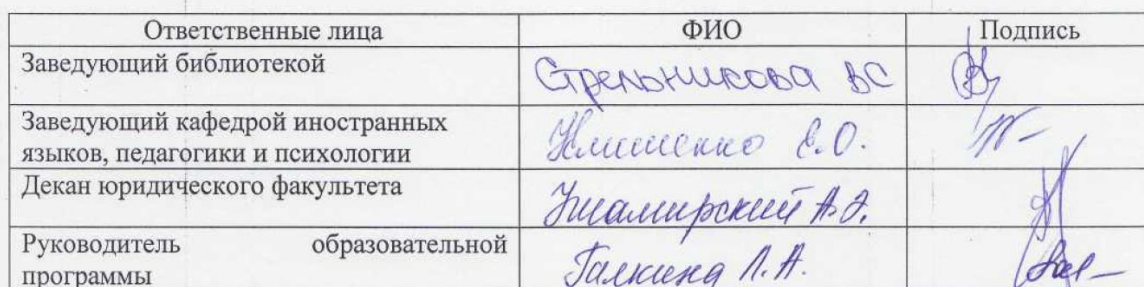 Ответственные лица ФИО Подпись
Заведующий библиотекой Стрельникова ВС
Заведующий кафедрой иностранных
языков, педагогики и психологии Е.О.
Декан юридического факультета А.Э.
Руководитель образовательной
программы Галкина Л.А.